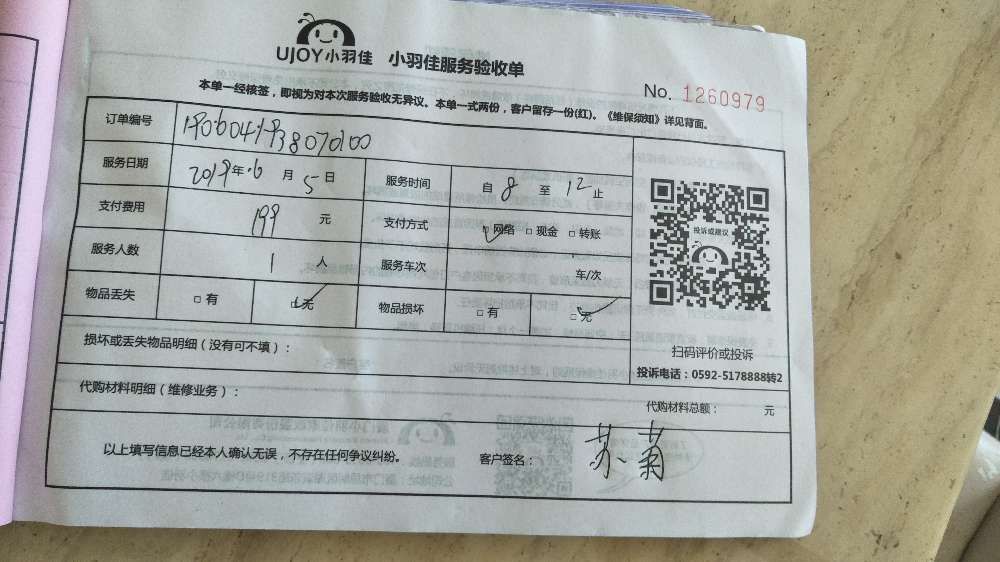 UJOY小羽佳 小羽佳服务验收单
No. 1260979
本单一经核签，即视为对本次服务验收无异议。本单一式两份，客户留存一份(红)。《维保须知》详见背面。
订单编号 1906041938070100
服务日期 2019年6月5日 服务时间 自8至12止
支付费用 199元 支付方式 ☑网络 □现金 □转账
服务人数 1人 服务车次 车/次
物品丢失 □有 ☑无 物品损坏 □有 ☑无
投诉或建议
扫码评价或投诉
投诉电话：0592-5178888转2
损坏或丢失物品明细（没有可不填）：
代购材料明细（维修业务）：
代购材料总额： 元
以上填写信息已经本人确认无误，不存在任何争议纠纷。 客户签名： 苏菊